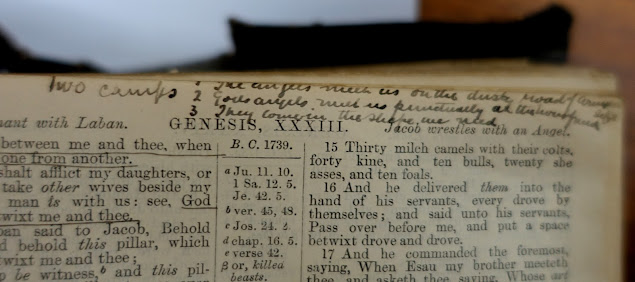 Two camps 1 The angels meet us on the dusty road of
2 Gods angels meet us punctually at the hour
3 They come in the shape we need
nant with Laban.
GENESIS, XXXIII.
Jacob wrestles with an Angel.
between me and thee, when
one from another.
shalt afflict my daughters, or
take other wives beside my
man is with us: see, God
twixt me and thee.
ban said to Jacob, Behold
d behold this pillar, which
twixt me and thee;
be witness,b and this pil-
B. C. 1739.
a Ju. 11. 10.
1 Sa. 12. 5.
Je. 42. 5.
b ver. 45, 48.
c Jos. 24. 2.
d chap. 16. 5.
e verse 42.
β or, killed
beasts.
15 Thirty milch camels with their colts,
forty kine, and ten bulls, twenty she
asses, and ten foals.
16 And he delivered them into the
hand of his servants, every drove by
themselves; and said unto his servants,
Pass over before me, and put a space
betwixt drove and drove.
17 And he commanded the foremost,
saying, When Esau my brother meeteth
thee, and asketh thee, saying, Whose art